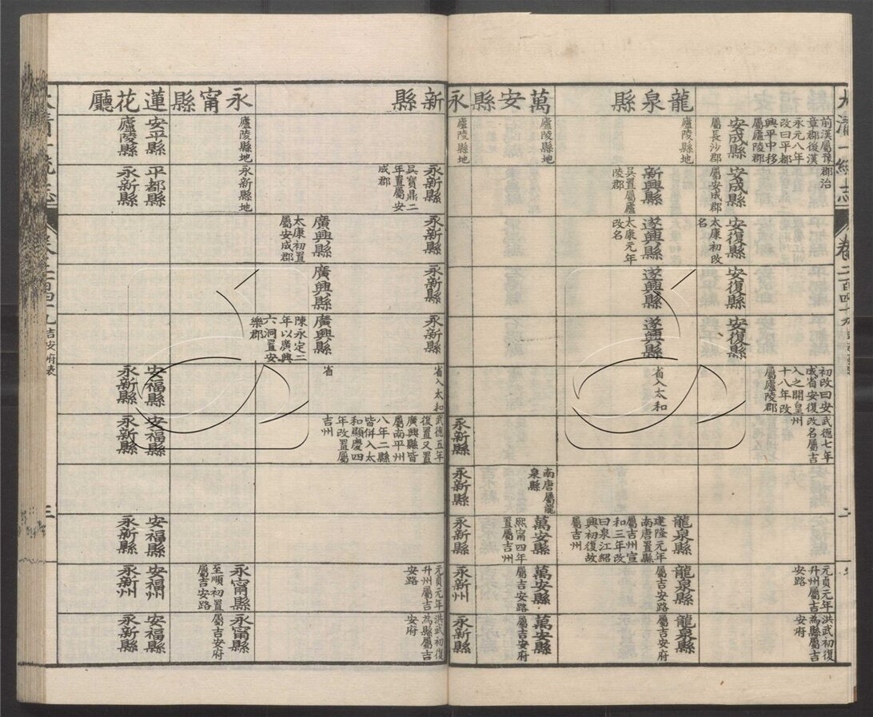 大清一統志
前漢屬豫
章郡後漢
永元八年
改曰平都
興平中移
屬廬陵郡
郡治
安成縣
屬長沙郡
安成縣
屬安成郡
安復縣
太康初改
名
安復縣
安復縣
初改曰安
成省安復
入之開皇
十八年改
屬廬陵郡
武德七年
改名屬吉
州
元貞元年
升州屬吉
安路
洪武初復
為縣屬吉
安府
龍泉縣
廬陵縣地
新興縣
吳置屬廬
陵郡
遂興縣
太康元年
改名
遂興縣
遂興縣
省入太和
龍泉縣
建隆元年
南唐置縣
屬吉州宣
和三年改
曰泉江紹
興初復故
屬吉州
龍泉縣
屬吉安路
龍泉縣
屬吉安府
萬安縣
廬陵縣地
南唐屬龍
泉縣
萬安縣
熙甯四年
置屬吉州
萬安縣
屬吉安路
萬安縣
屬吉安府
永新縣
永新縣
永新縣
永新縣
永新州
永新縣
永新縣
吳寶鼎二
年置屬安
成郡
永新縣
永新縣
永新縣
省入太和
武德五年
復置又置
廣興縣皆
屬南平州
八年二縣
皆併入太
和顯慶四
年改置屬
吉州
元貞元年
升州屬吉
安路
洪武初復
為縣屬吉
安府
廣興縣
太康初置
屬安成郡
廣興縣
廣興縣
陳永定二
年以廣興
六洞置安
樂郡
省
永甯縣
廬陵縣地
永新縣地
永甯縣
至順初置
屬吉安路
永甯縣
屬吉安府
蓮花廳
安平縣
廬陵縣
平都縣
永新縣
安福縣
永新縣
安福縣
永新縣
安福縣
永新縣
安福州
永新州
安福縣
永新縣
大清一統志
吉安府表
三